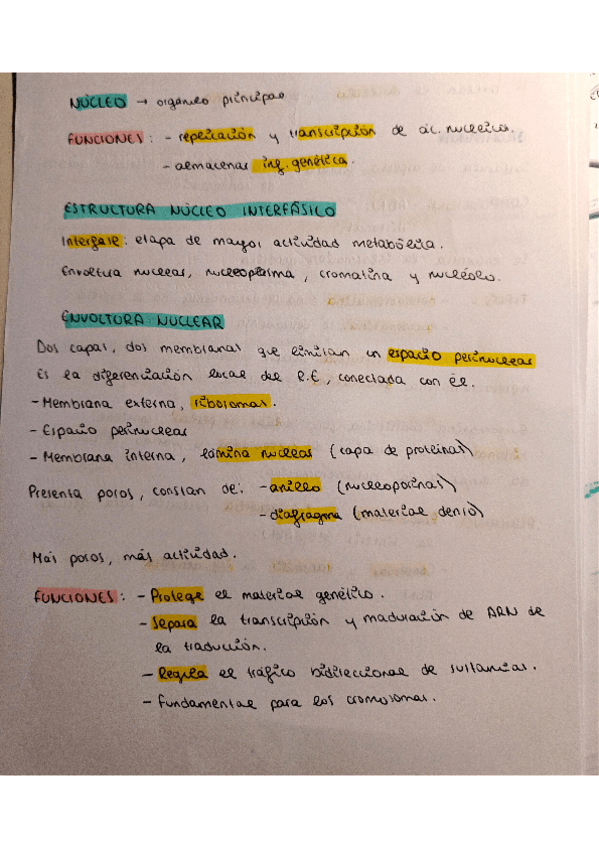 NÚCLEO → orgánulo principal
FUNCIONES: - replicación y transcripción de ác. nucleico.
- almacenar inf. genética.
ESTRUCTURA NÚCLEO INTERFÁSICO
Interfase: etapa de mayor actividad metabólica.
Envoltura nuclear, nucleoplasma, cromatina y nucléolo.
ENVOLTURA NUCLEAR
Dos capas, dos membranas que limitan un espacio perinuclear
Es la diferenciación local del R.E, conectada con él.
- Membrana externa, ribosomas.
- Espacio perinuclear
- Membrana interna, lámina nuclear (capa de proteínas)
Presenta poros, constan de: - anillo (nucleoporinas)
- diafragma (material denso)
Más poros, más actividad.
FUNCIONES: - Protege el material genético.
- Separa la transcripción y maduración de ARN de
la traducción.
- Regula el tráfico bidireccional de sustancias.
- Fundamental para los cromosomas.